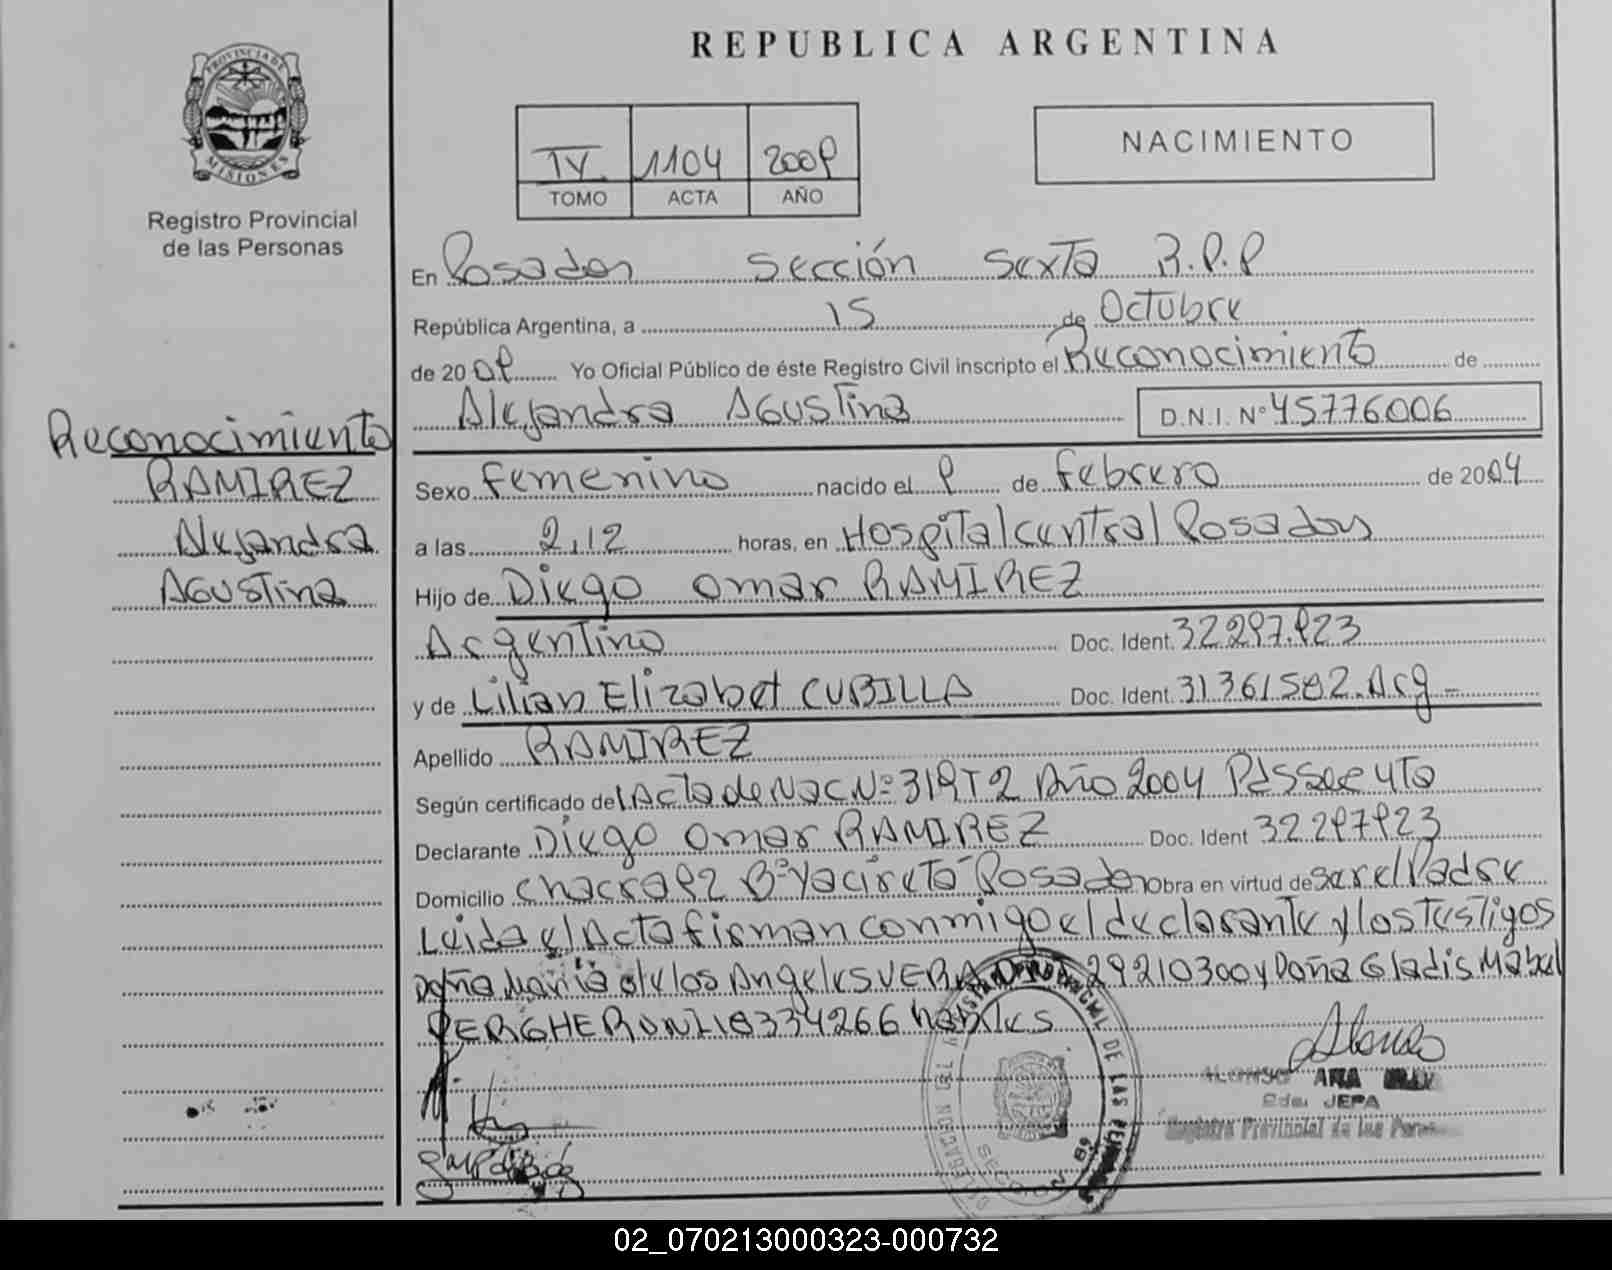 REPUBLICA ARGENTINA
PROVINCIA DE
MISIONES
Registro Provincial
de las Personas
IV 1104 2008
TOMO ACTA AÑO
NACIMIENTO
En Posadas Sección Sexta R.P.P
República Argentina, a 15 de Octubre
de 2008 Yo Oficial Público de éste Registro Civil inscripto el Reconocimiento de
Alejandra Agustina D.N.I. Nº 45776006
Reconocimiento
RAMIREZ
Alejandra
Agustina
Sexo Femenino nacido el 8 de Febrero de 2004
a las 2,12 horas, en Hospital Central Posadas
Hijo de Diego Omar RAMIREZ
Argentino Doc. Ident. 32287.823
y de Lilian Elizabet CUBILLA Doc. Ident. 31361502. Arg -
Apellido RAMIREZ
Según certificado del Acta de Nac Nº 318 T2 Año 2004 Pdas Sec 4ta
Declarante Diego Omar RAMIREZ Doc. Ident 32287823
Domicilio Chacra 82 Bº Yacireta Posadas Obra en virtud de Ser el Padre
Leida el Acta firman conmigo el declarante y los testigos
Doña Maria de los Angeles VERA 29210300 y Doña Gladis Mabel
PERGHER DNI 18334266 habiles
REGISTRO PROVINCIAL DE LAS PERSONAS
DELEGACION
SECCION
ALONSO ANA
Jefa
Registro Provincial de las Personas
02_070213000323-000732